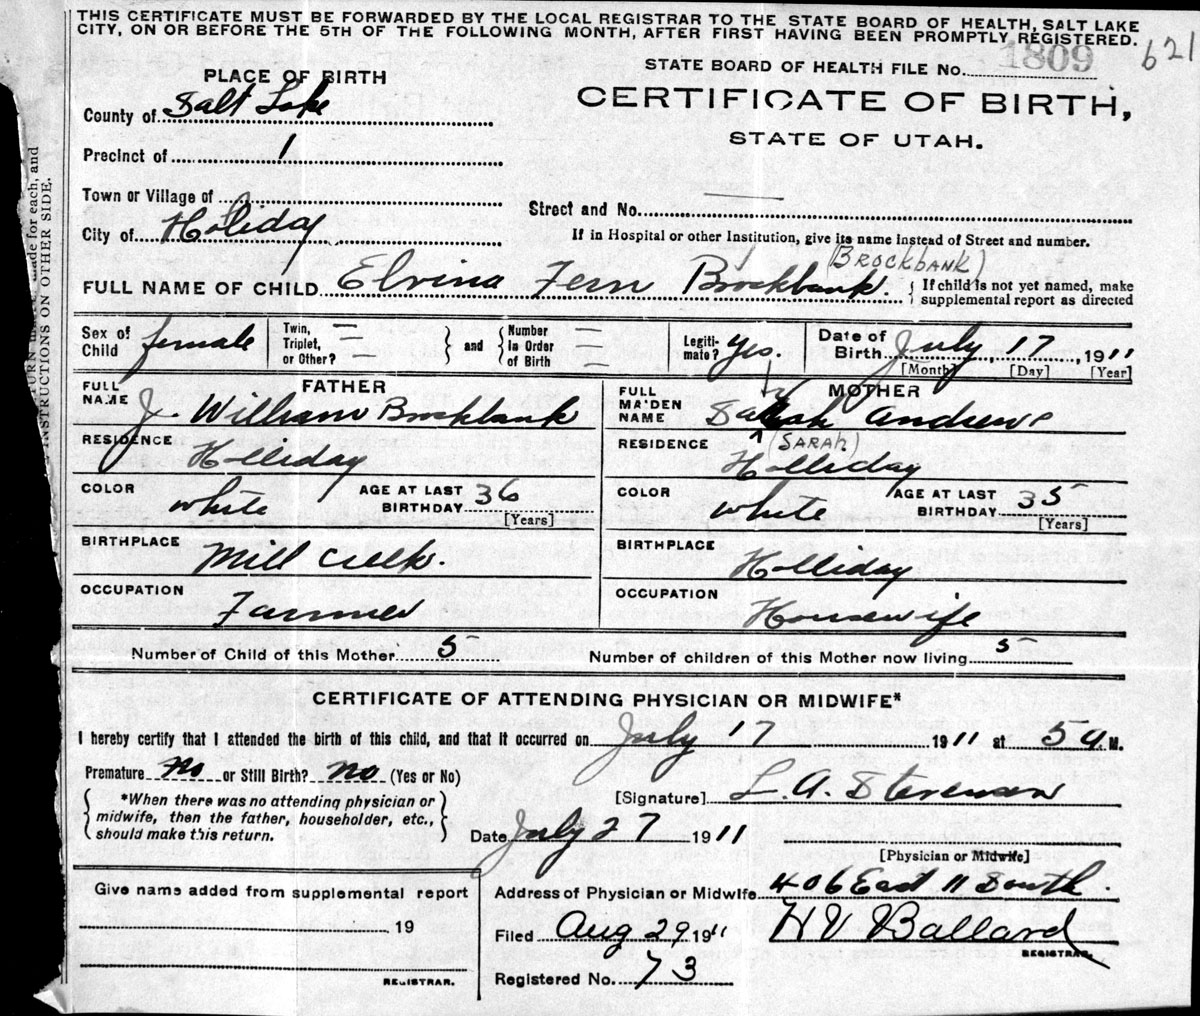 THIS CERTIFICATE MUST BE FORWARDED BY THE LOCAL REGISTRAR TO THE STATE BOARD OF HEALTH, SALT LAKE
CITY, ON OR BEFORE THE 5TH OF THE FOLLOWING MONTH, AFTER FIRST HAVING BEEN PROMPTLY REGISTERED.
621
PLACE OF BIRTH
STATE BOARD OF HEALTH FILE No. 1809
County of Salt Lake
CERTIFICATE OF BIRTH,
STATE OF UTAH.
Precinct of 1
Town or Village of
Street and No.
City of Holiday
If in Hospital or other Institution, give its name instead of Street and number.
(BROCKBANK)
FULL NAME OF CHILD Elvina Fern Brockbank. { If child is not yet named, make
supplemental report as directed
Sex of Child female
Twin, Triplet, or Other? —
} and { Number in Order of Birth —
Legiti-mate? yes.
Date of Birth July 17, 1911
[Month] [Day] [Year]
FATHER
FULL NAME J. William Brockbank
RESIDENCE Holliday
COLOR white AGE AT LAST BIRTHDAY 36
[Years]
BIRTHPLACE Mill Creek.
OCCUPATION Farmer
MOTHER
FULL MAIDEN NAME Sarah Andrews
(SARAH)
RESIDENCE Holliday
COLOR white AGE AT LAST BIRTHDAY 35
[Years]
BIRTHPLACE Holliday
OCCUPATION Housewife
Number of Child of this Mother 5 Number of children of this Mother now living 5
CERTIFICATE OF ATTENDING PHYSICIAN OR MIDWIFE*
I hereby certify that I attended the birth of this child, and that it occurred on July 17 1911 at 5 a. M.
Premature no or Still Birth? no (Yes or No)
{ *When there was no attending physician or
midwife, then the father, householder, etc.,
should make this return. }
[Signature] L. A. Stevenson
Date July 27 1911
[Physician or Midwife]
Give name added from supplemental report
19
REGISTRAR.
Address of Physician or Midwife 406 East 11 South.
Filed Aug 29 1911 H V Ballard
REGISTRAR.
Registered No. 73
made for each, and
INSTRUCTIONS ON OTHER SIDE.